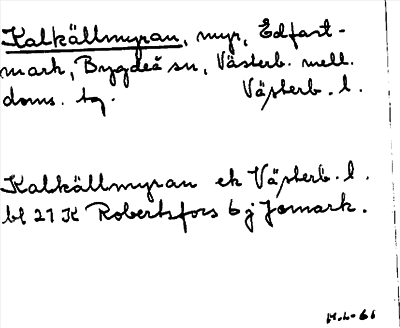 Kalkällmyran, myr, Edfast-
mark, Bygdeå sn, Västerb. mell.
doms. tg. Västerb. l.
Kalkällmyran ek Västerb. l.
bl 21 K Robertsfors 6 j Jomark.
M.L-66